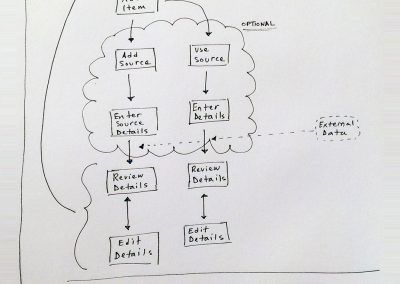 Item
OPTIONAL
Add
Source
Use
Source
Enter
Source
Details
Enter
Details
External
Data
Review
Details
Review
Details
Edit
Details
Edit
Details